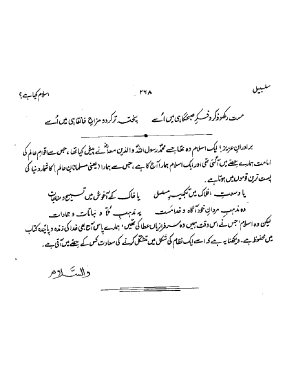 سلسبیل ۲۶۸ اسلام کیا ہے؟
مست رکھو ذکر و فکرِ صبحگاہی میں اسے پختہ تر کر دو مزاجِ خانقاہی میں اسے
برادرانِ عزیز! ایک اسلام وہ تھا جسے محمد رسول اللہ والذین معہ نے پیش کیا تھا، جس سے اقوامِ عالم کی
امامت ہمارے حصے میں آ گئی تھی اور ایک اسلام ہمارا آج کا ہے، جس سے ہمارا (یعنی مسلمانانِ عالم) کا شمار دنیا کی
پست ترین قوموں میں ہوتا ہے۔
یا وسعتِ افلاک میں تکبیرِ مسلسل یا خاک کے آغوش میں تسبیح و مناجات
وہ مذہبِ مردانِ خود آگاہ و خدا مست یہ مذہبِ ملا و نباتات و جمادات
لیکن وہ اسلام جس نے اس وقت ہمیں وہ سرفرازیاں عطا کی تھیں، ہمارے پاس آج بھی خدا کی زندہ و پائندہ کتاب
میں محفوظ ہے۔ دیکھنا یہ ہے کہ اسے ایک نظام کی شکل میں متشکل کرنے کی سعادت کس کے حصے میں آتی ہے۔
والسلام